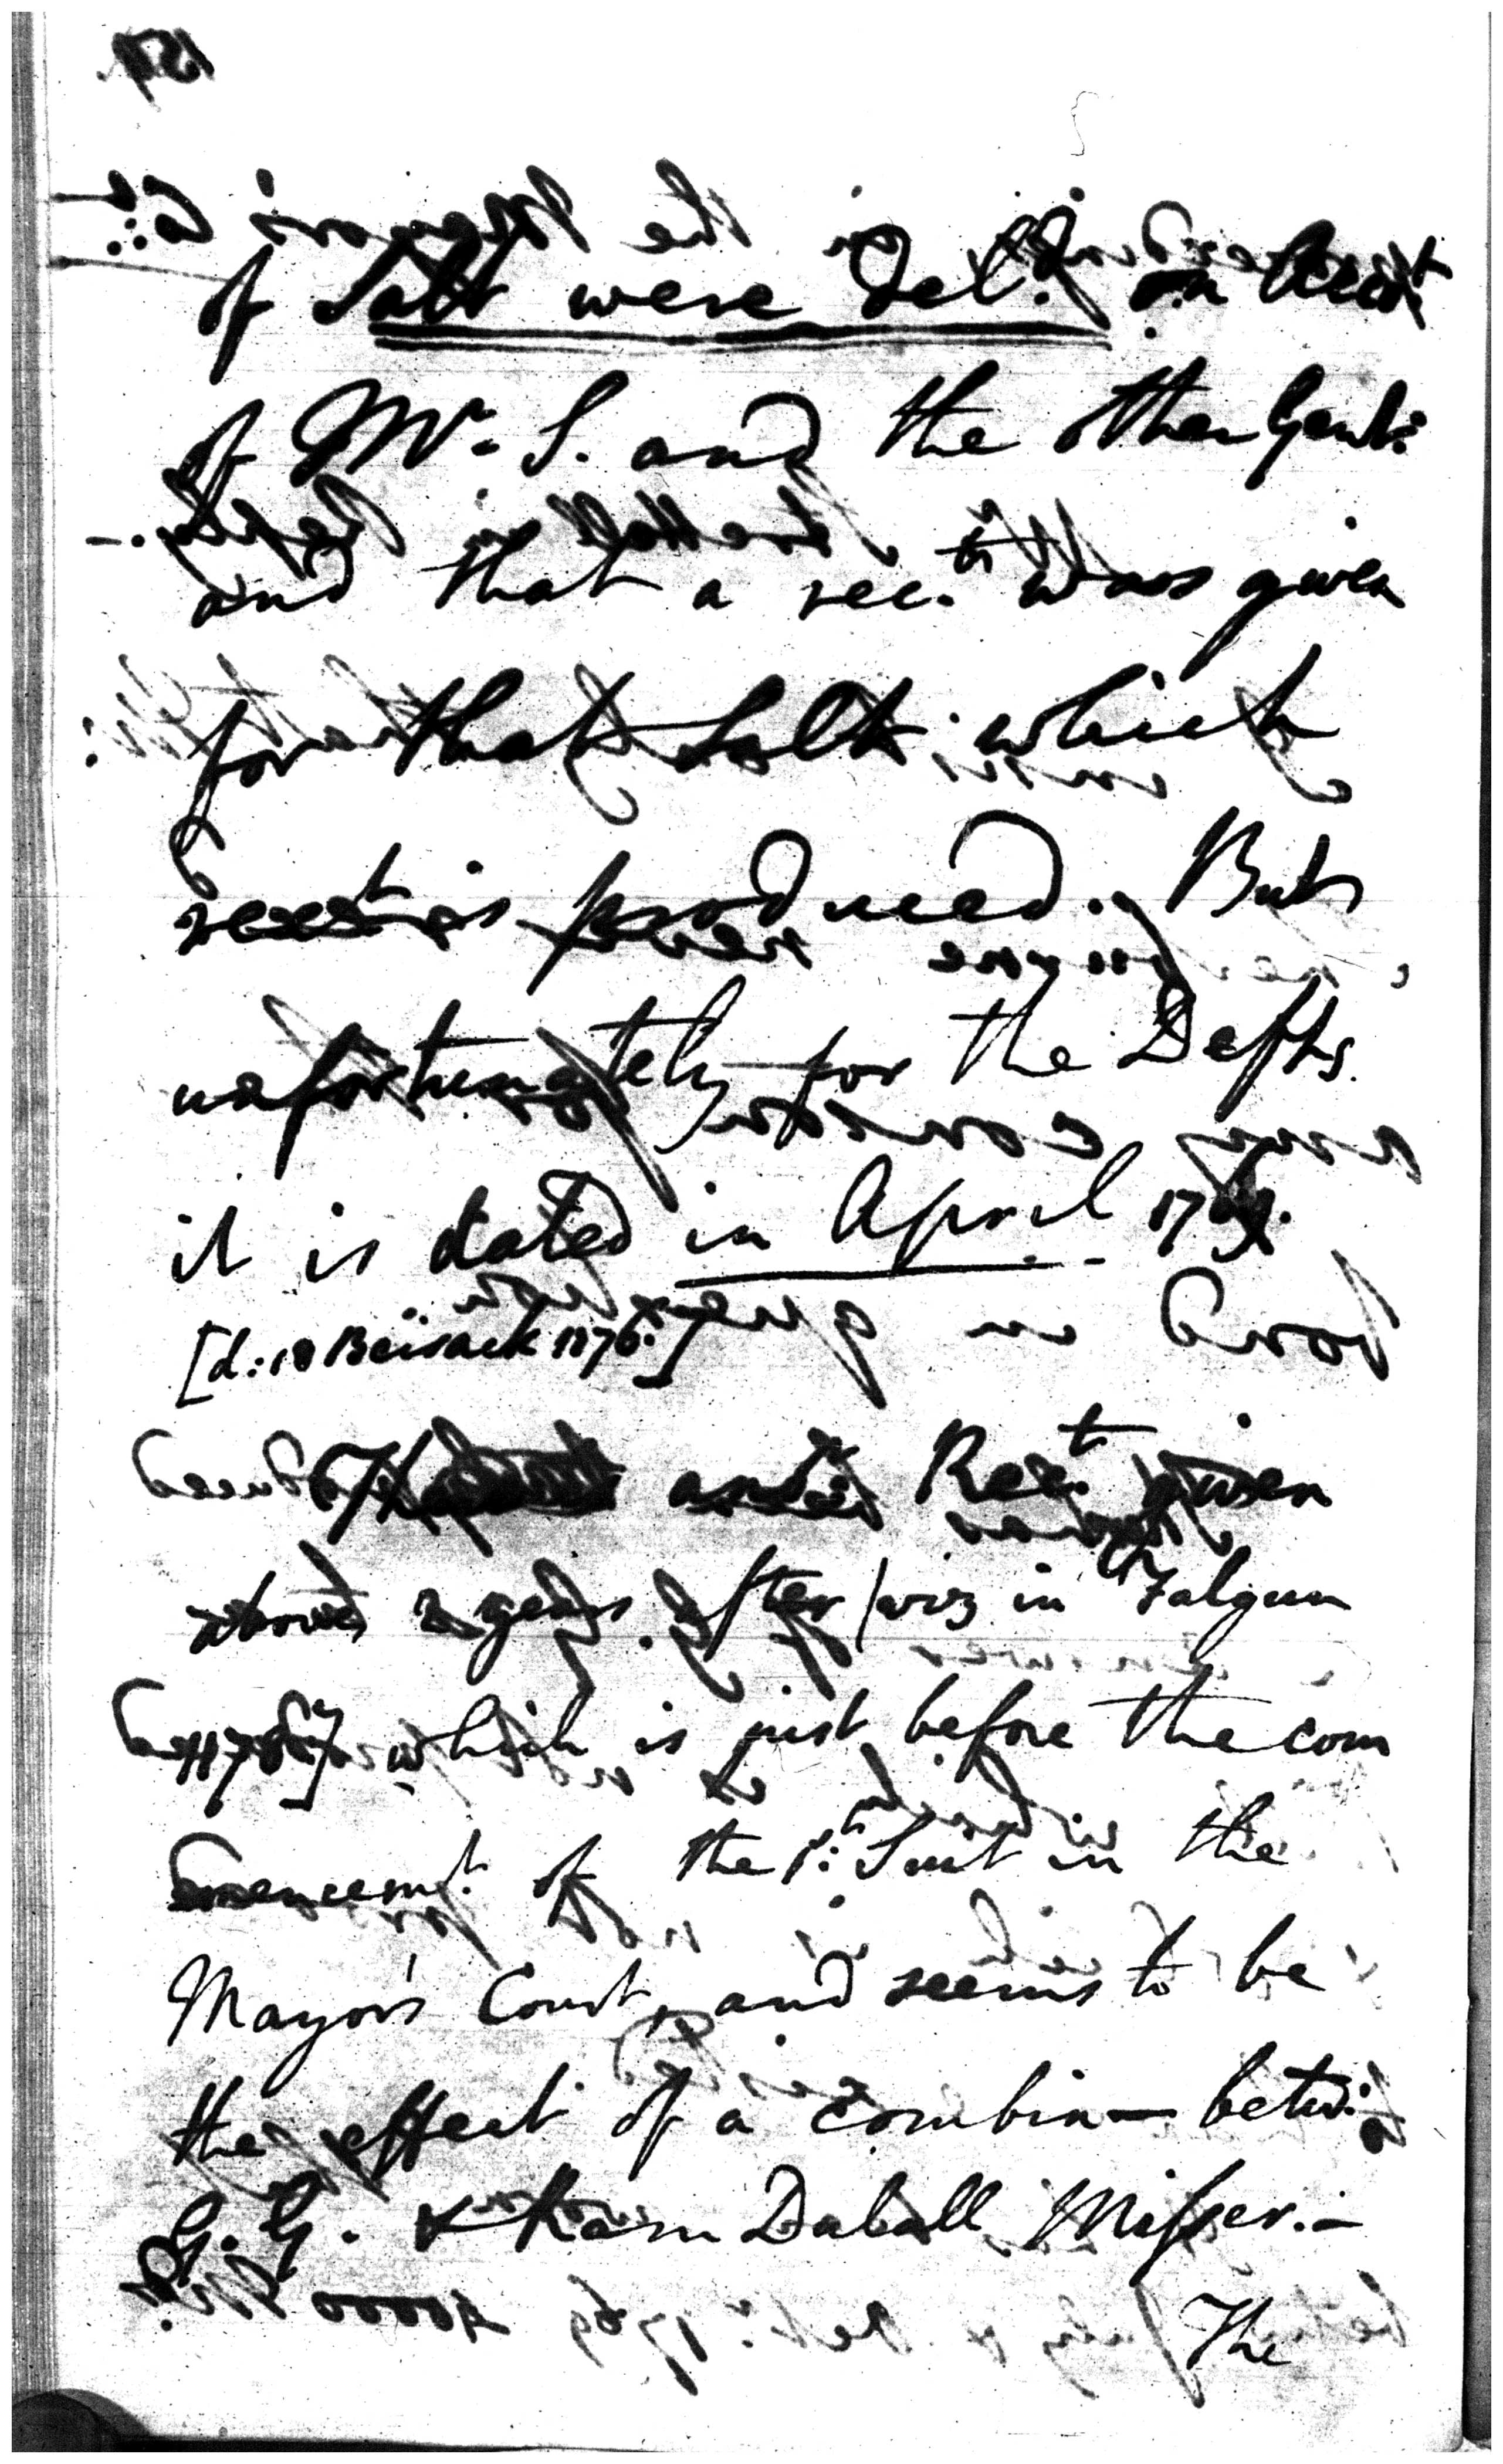 of Salt were del.d on Acct
of Mr. S. and the other Gent:
and that a rec.t was given
for that Salt which
rect is produced. But
unfortunately for the Defts.
it is dated in April 1769.
[d: 18 Beisack 1176.]
and Rec.t given
above 2 years after viz in Falgun
which is just before the com
mencem.t of the 1:t Suit in the
Mayor's Court, and seems to be
the effect of a combin— betw:
G. G. & Ram Duball Misser.—
The